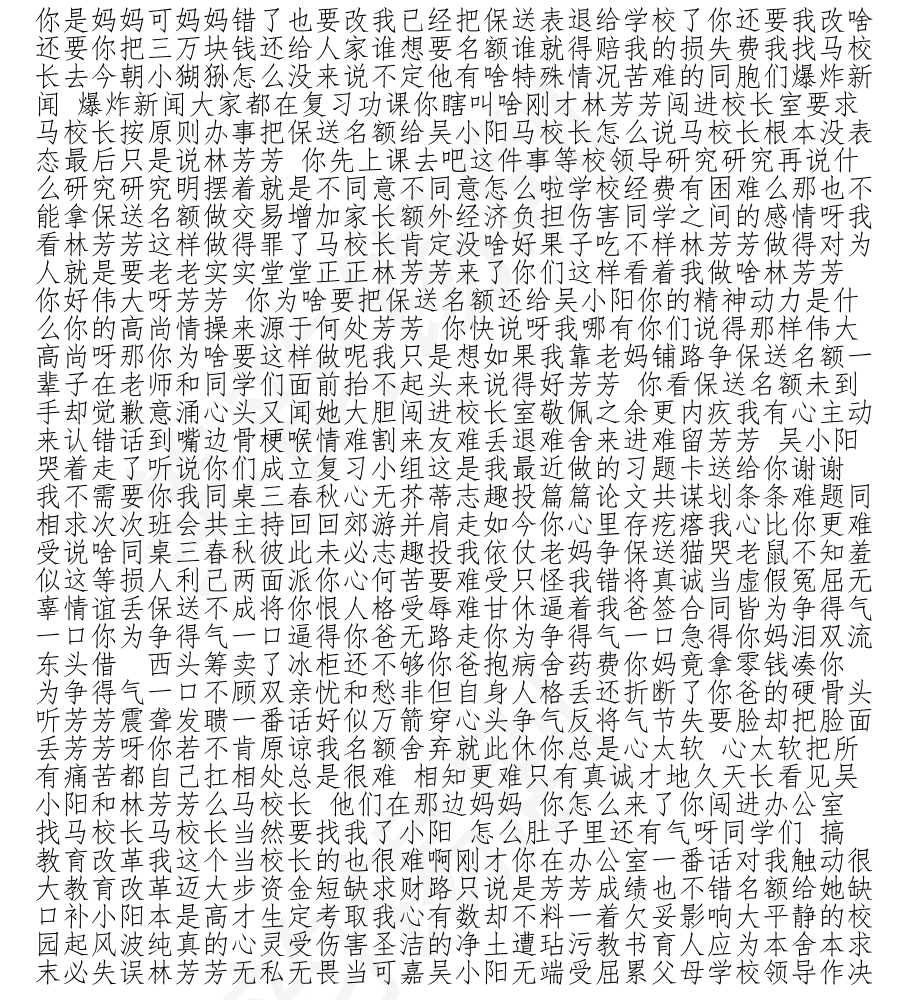 你是妈妈可妈妈错了也要改我已经把保送表退给学校了你还要我改啥
还要你把三万块钱还给人家谁想要名额谁就得赔我的损失费我找马校
长去今朝小猢狲怎么没来说不定他有啥特殊情况苦难的同胞们爆炸新
闻 爆炸新闻大家都在复习功课你瞎叫啥刚才林芳芳闯进校长室要求
马校长按原则办事把保送名额给吴小阳马校长怎么说马校长根本没表
态最后只是说林芳芳 你先上课去吧这件事等校领导研究研究再说什
么研究研究明摆着就是不同意不同意怎么啦学校经费有困难么那也不
能拿保送名额做交易增加家长额外经济负担伤害同学之间的感情呀我
看林芳芳这样做得罪了马校长肯定没啥好果子吃不样林芳芳做得对为
人就是要老老实实堂堂正正林芳芳来了你们这样看着我做啥林芳芳
你好伟大呀芳芳 你为啥要把保送名额还给吴小阳你的精神动力是什
么你的高尚情操来源于何处芳芳 你快说呀我哪有你们说得那样伟大
高尚呀那你为啥要这样做呢我只是想如果我靠老妈铺路争保送名额一
辈子在老师和同学们面前抬不起头来说得好芳芳 你看保送名额未到
手却觉歉意涌心头又闻她大胆闯进校长室敬佩之余更内疚我有心主动
来认错话到嘴边骨梗喉情难割来友难丢退难舍来进难留芳芳 吴小阳
哭着走了听说你们成立复习小组这是我最近做的习题卡送给你谢谢
我不需要你我同桌三春秋心无芥蒂志趣投篇篇论文共谋划条条难题同
相求次次班会共主持回回郊游并肩走如今你心里存疙瘩我心比你更难
受说啥同桌三春秋彼此未必志趣投我依仗老妈争保送猫哭老鼠不知羞
似这等损人利己两面派你心何苦要难受只怪我错将真诚当虚假冤屈无
辜情谊丢保送不成将你恨人格受辱难甘休逼着我爸签合同皆为争得气
一口你为争得气一口逼得你爸无路走你为争得气一口急得你妈泪双流
东头借  西头筹卖了冰柜还不够你爸抱病舍药费你妈竟拿零钱凑你
为争得气一口不顾双亲忧和愁非但自身人格丢还折断了你爸的硬骨头
听芳芳震聋发聩一番话好似万箭穿心头争气反将气节失要脸却把脸面
丢芳芳呀你若不肯原谅我名额舍弃就此休你总是心太软 心太软把所
有痛苦都自己扛相处总是很难 相知更难只有真诚才地久天长看见吴
小阳和林芳芳么马校长 他们在那边妈妈 你怎么来了你闯进办公室
找马校长马校长当然要找我了小阳 怎么肚子里还有气呀同学们 搞
教育改革我这个当校长的也很难啊刚才你在办公室一番话对我触动很
大教育改革迈大步资金短缺求财路只说是芳芳成绩也不错名额给她缺
口补小阳本是高才生定考取我心有数却不料一着欠妥影响大平静的校
园起风波纯真的心灵受伤害圣洁的净土遭玷污教书育人应为本舍本求
末必失误林芳芳无私无畏当可嘉吴小阳无端受屈累父母学校领导作决